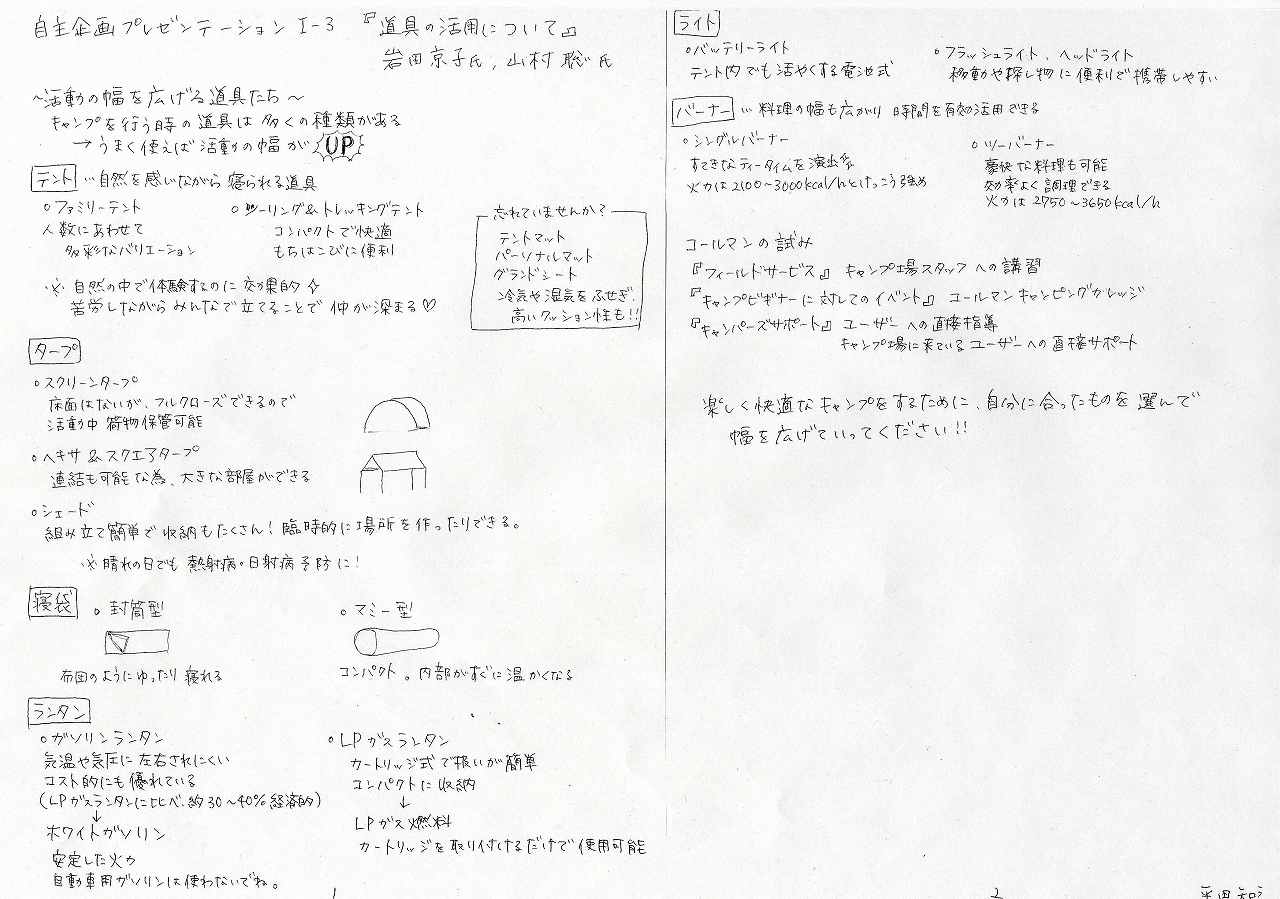 自主企画プレゼンテーション I-3 『道具の活用について』
岩田京子氏, 山村聡氏
~活動の幅を広げる道具たち~
キャンプを行う時の道具は多くの種類がある
→うまく使えば活動の幅がUP
テント …自然を感いながら寝られる道具
○ファミリーテント
人数にあわせて
多彩なバリエーション
○ツーリング&トレッキングテント
コンパクトで快適
もちはこびに便利
※自然の中で体験するのに効果的
苦労しながらみんなで立てることで仲が深まる♡
忘れていませんか?
テントマット
パーソナルマット
グランドシート
冷気や湿気をふせぎ、
高いクッション性も!!
タープ
○スクリーンタープ
床面はないが、フルクローズできるので
活動中荷物保管可能
○ヘキサ&スクエアタープ
連結も可能な為、大きな部屋ができる
○シェード
組み立て簡単で収納もたくさん!臨時的に場所を作ったりできる。
※晴れの日でも熱射病・日射病予防に!
寝袋
○封筒型
布団のようにゆったり寝れる
○マミー型
コンパクト。内部がすぐに温かくなる
ランタン
○ガソリンランタン
気温や気圧に左右されにくい
コスト的にも優れている
(LPガスランタンに比べ、約30~40%経済的)
↓
ホワイトガソリン
安定した火力
自動車用ガソリンは使わないでね。
○LPガスランタン
カートリッジ式で扱いが簡単
コンパクトに収納
↓
LPガス燃料
カートリッジを取り付けるだけで使用可能
1
ライト
○バッテリーライト
テント内でも活やくする電池式
○フラッシュライト、ヘッドライト
移動や探し物に便利で携帯しやすい
バーナー …料理の幅も広がり時間を有効活用できる
○シングルバーナー
すてきなティータイムを演出
火力は2100~3000kcal/hとけっこう強め
○ツーバーナー
豪快な料理も可能
効率よく調理できる
火力は2750~3650kcal/h
コールマンの試み
『フィールドサービス』 キャンプ場スタッフへの講習
『キャンプビギナーに対してのイベント』 コールマンキャンピングカレッジ
『キャンパーズサポート』 ユーザーへの直接指導
キャンプ場に来ているユーザーへの直接サポート
楽しく快適なキャンプをするために、自分に合ったものを選んで
幅を広げていってください!!
2